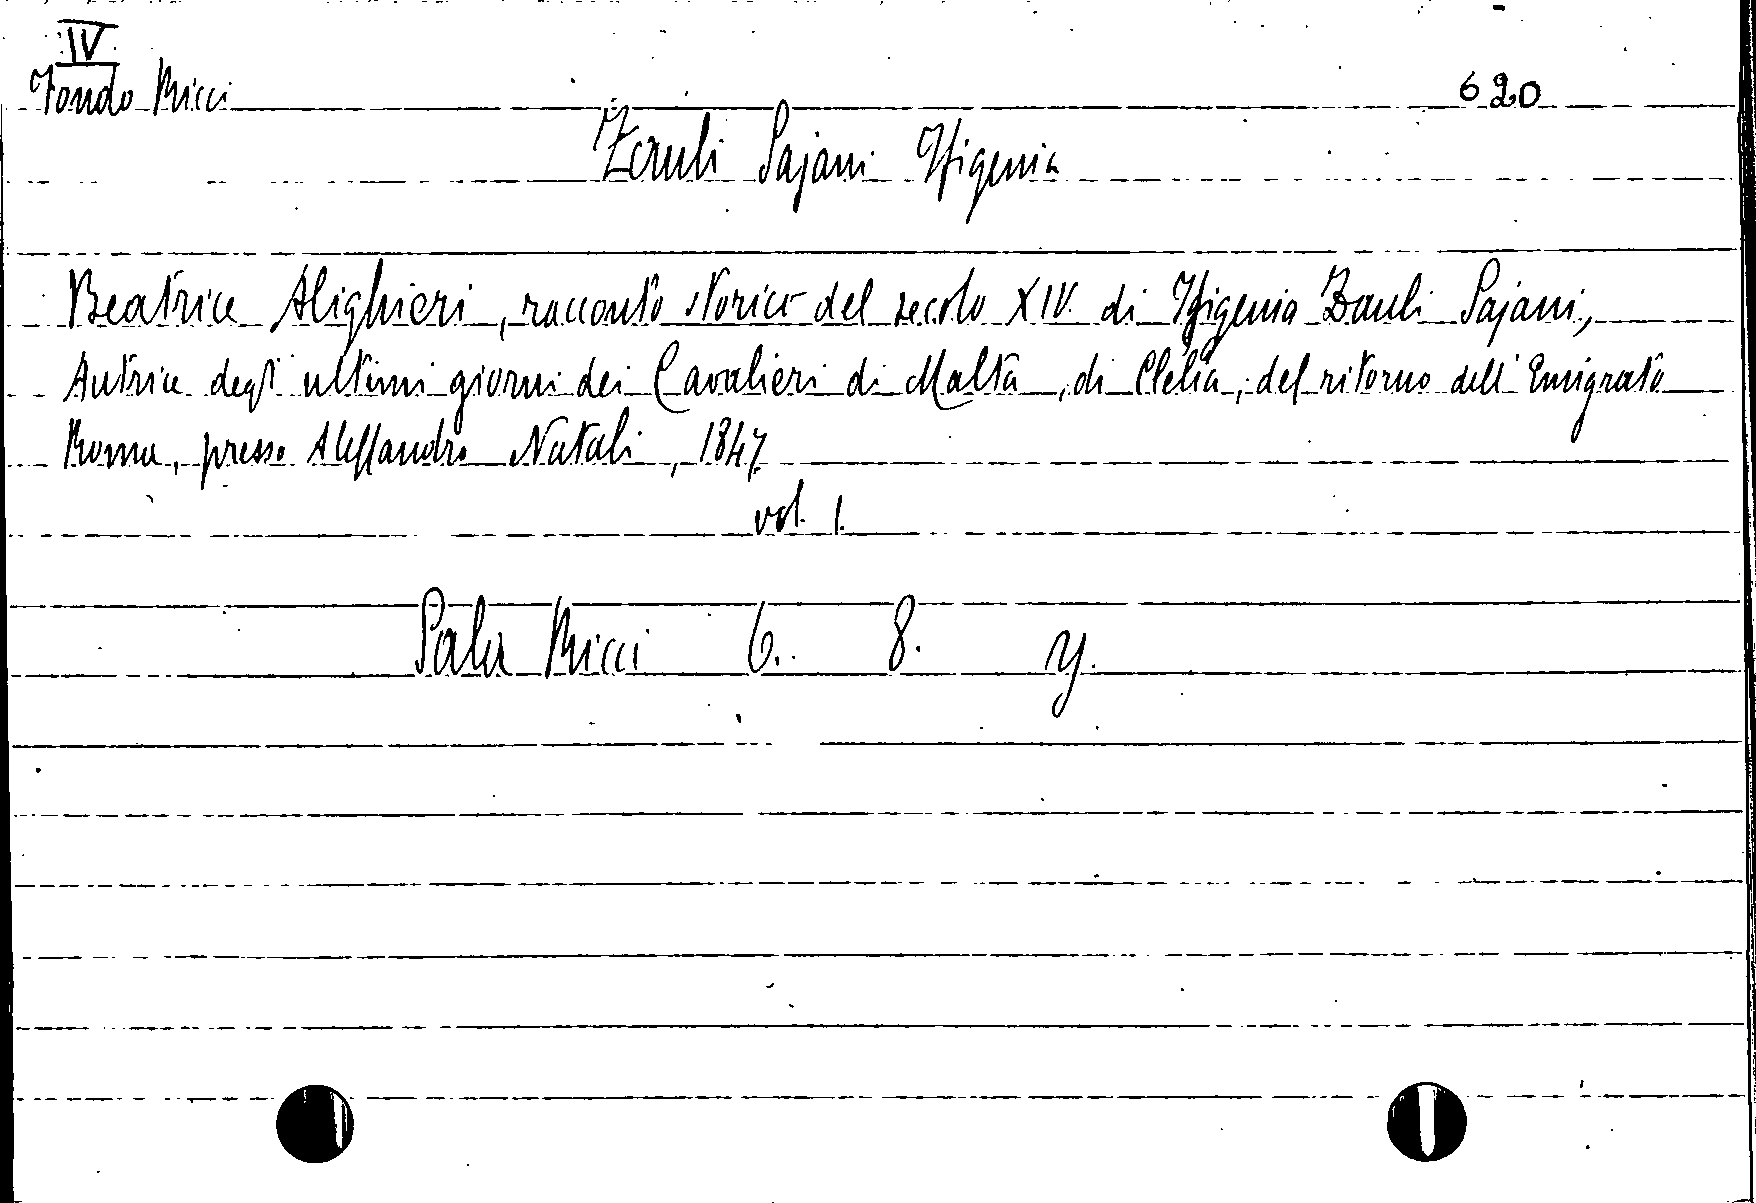 IV
Fondo Ricci 620
Zauli Sajani Ifigenia
Beatrice Alighieri, racconto storico del secolo XIV. di Ifigenia Zauli Sajani,
Autrice degl' ultimi giorni dei Cavalieri di Malta, di Clelia, del ritorno dell' Emigrato
Roma, presso Alessandro Natali, 1847
vol. 1.
Sala Ricci 6. 8. y.